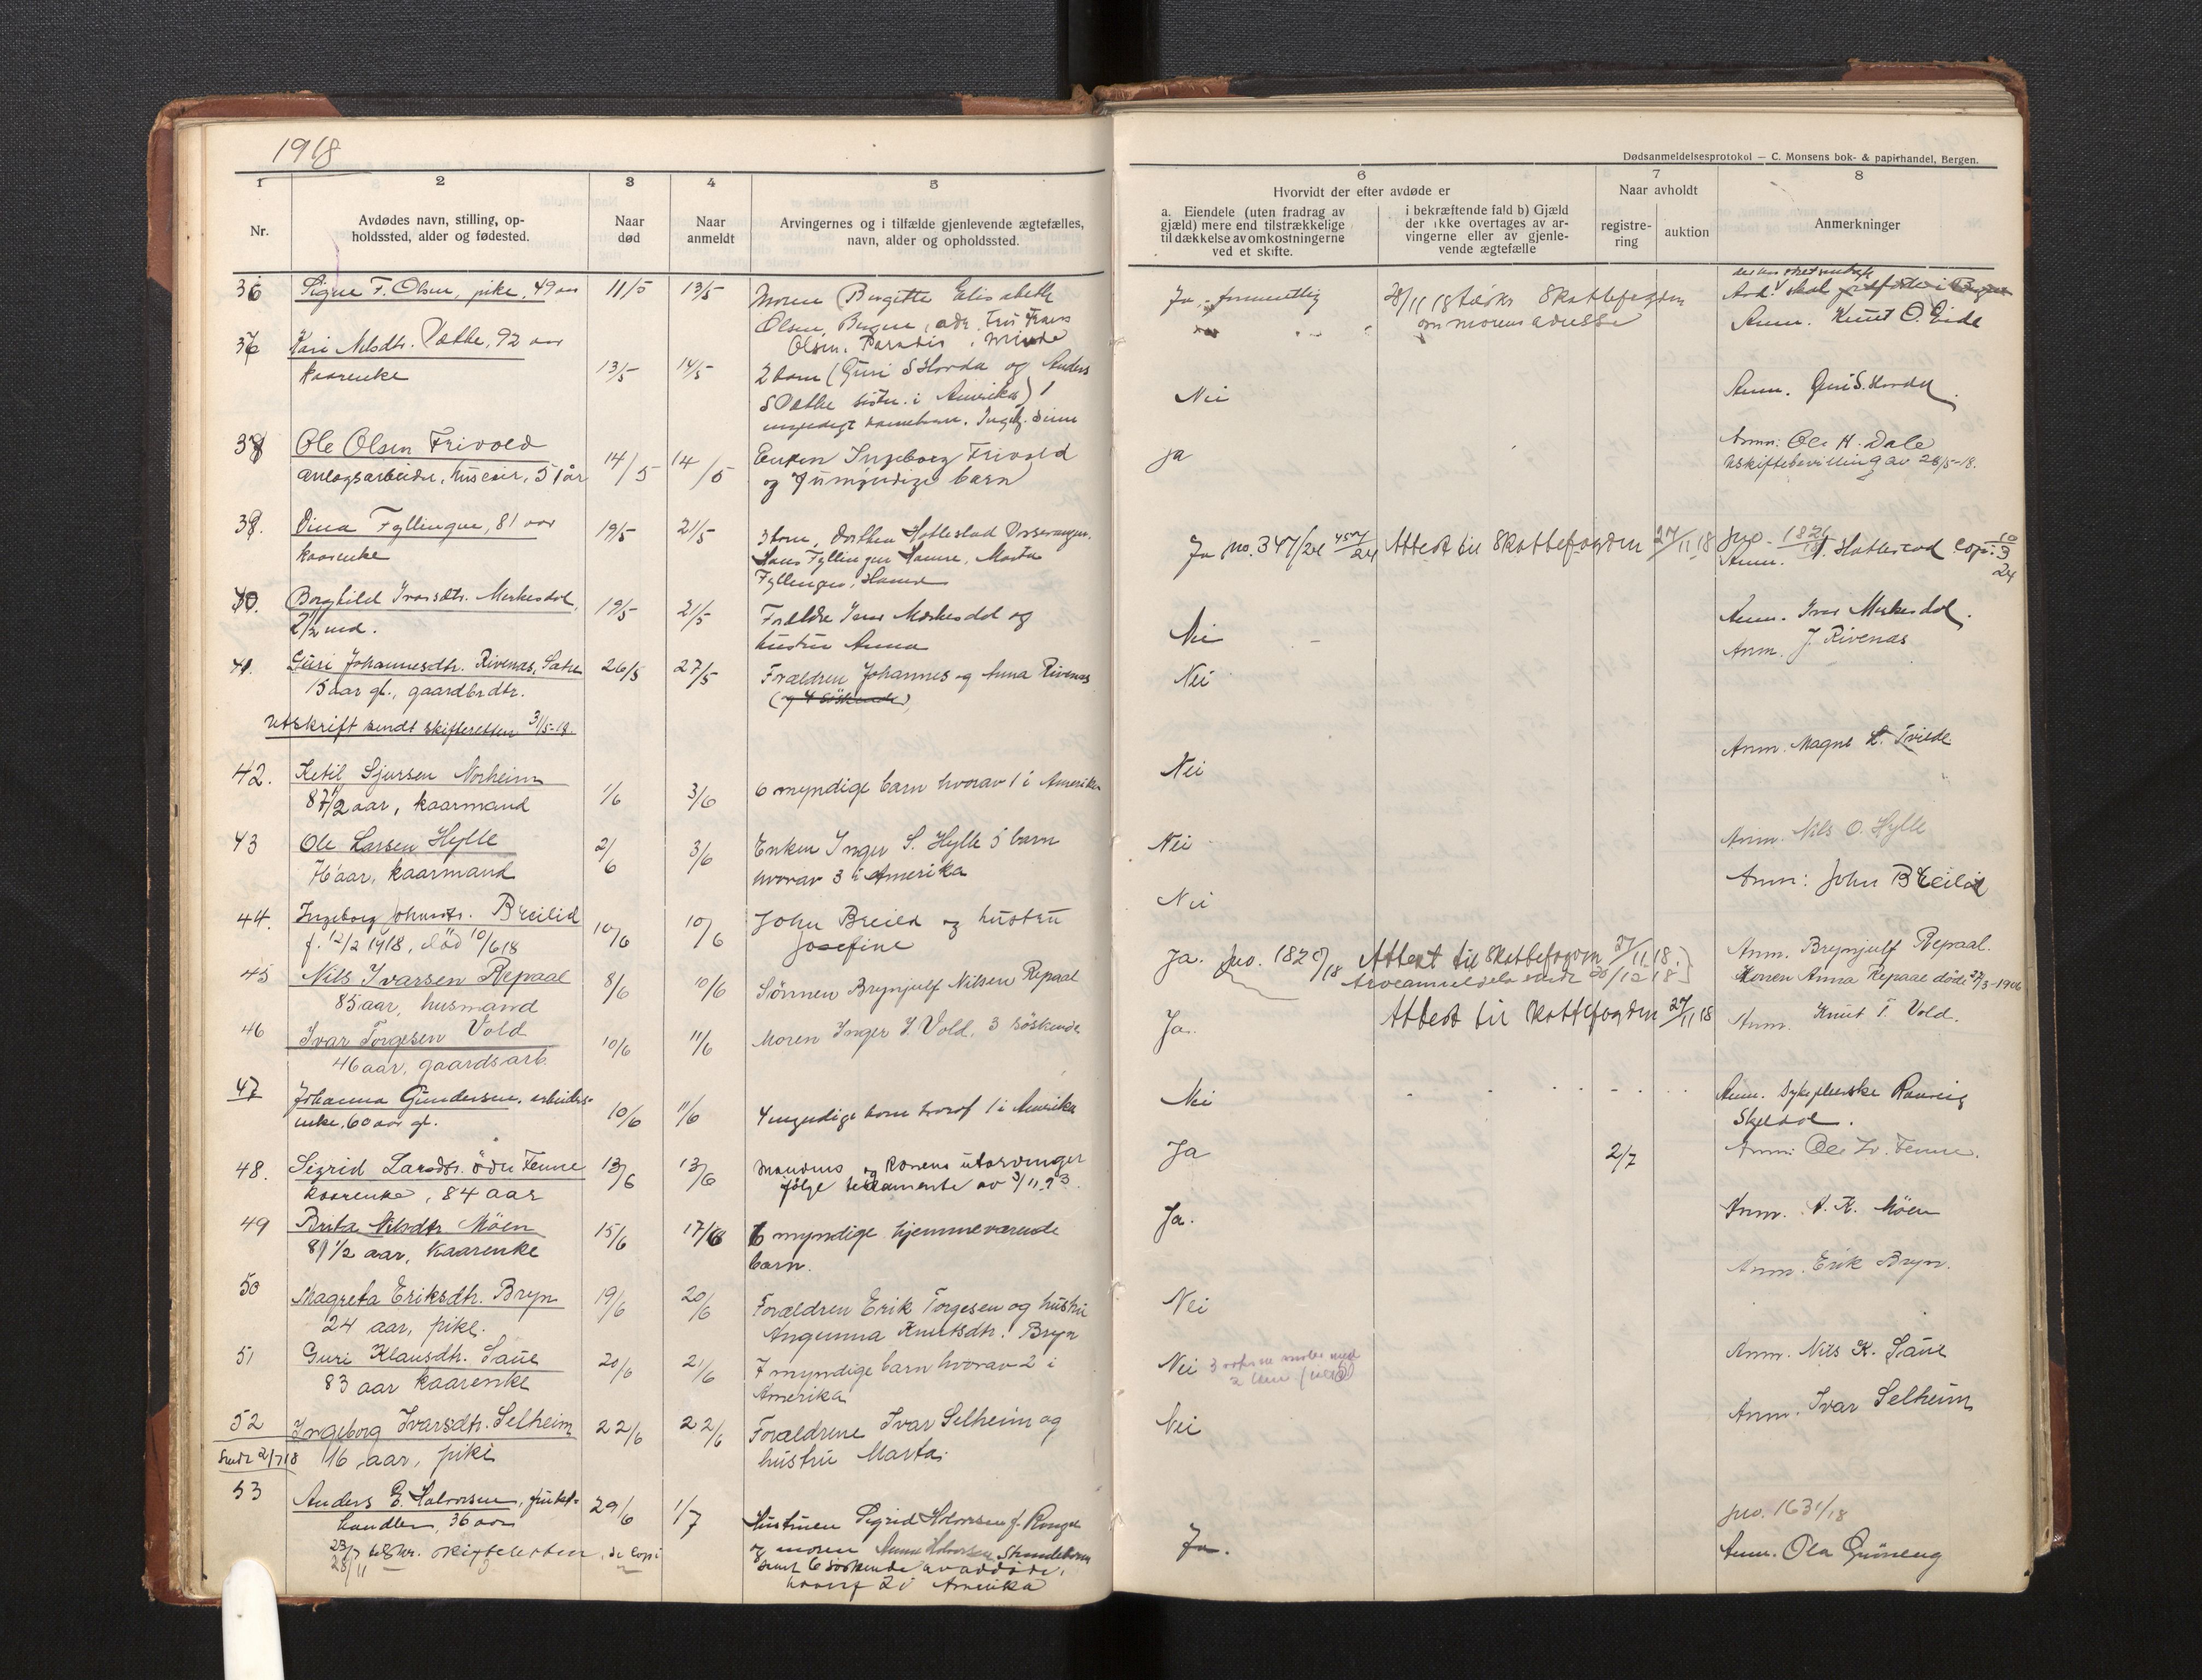 1918
1
2
3
4
5
Nr.
Avdødes navn, stilling, op-
holdssted, alder og fødested.
Naar
død
Naar
anmeldt
Arvingernes og i tilfælde gjenlevende ægtefælles,
navn, alder og opholdssted.
36 Signe F. Olsen, pike, 49 aar 11/5 13/5 Moren Birgitte Elisabeth
Olsen, Bergen, adr. Fru Frans
Olsen, Paradis
37 Kari Nelsdtr. Væthe, 92 aar
kaarenke 13/5 14/5 2 barn (Guri S Horda og Anders
S Væthe i Amerika) 1
38 Ole Olsen Trivold
anlægsarbeider, huseier, 51 år 14/5 14/5 Enken Ingeborg Trivold
og 7 umyndige barn
39. Dina Fyllingen, 81 aar
kaarenke 19/5 21/5 3 barn, Dorthea Hattestad Vossevangen,
Hans Fyllingen Hamre, Marta
Fyllingen, Hamre
40. Borghild Ivarsdtr. Merkesdal,
2 1/2 md. 19/5 21/5 Forældre Ivar Merkesdal og
hustru Anna
41. Guri Johannesdtr. Rivenas,
15 aar gl., gaardbrdtr. 26/5 27/5 Forældren Johannes og Anna Rivenas
(og 4 søskende)
Utskrift sendt skifteretten 31/5-18.
42. Ketil Sjursen Norheim
87 1/2 aar, kaarmand 1/6 3/6 6 myndige barn hvorav 1 i Amerika
43 Ole Larsen Hylle
76 aar, kaarmand 2/6 3/6 Enken Inger S. Hylle 5 barn
hvorav 3 i Amerika
44. Ingeborg Johnsdtr. Breilid
f. 12/2 1918, død 10/6 18 10/6 10/6 John Breilid og hustru
Josefine
45 Nils Ivarsen Repaal
85 aar, husmand 8/6 10/6 Sønnen Brynjulf Nilsen Repaal
46 Ivar Torgesen Vold
46 aar, gaardsarb. 10/6 11/6 Moren Inger I. Vold, 3 søskende
47 Johanna Gundersen, arbeider-
enke, 60 aar gl. 10/6 11/6 4 myndige barn hvoraf 1 i Amerika
48. Sigrid Larsdtr. Fenne
kaarenke, 84 aar 13/6 13/6 Mandens og Konens utarvinger
ifølge testamente av
49 Brita Nilsdtr. Møen
81 1/2 aar, kaarenke 15/6 17/6 6 myndige hjemmeværende
barn.
50 Magreta Eriksdtr. Bryn
24 aar, pike. 19/6 20/6 Forældren Erik Torgesen og hustru
Angunna Knutsdtr. Bryn
51 Guri Klausdtr. Saue
83 aar kaarenke 20/6 21/6 7 myndige barn hvorav 2 i
Amerika
52 Ingeborg Ivarsdtr. Selheim
Sendt 2/7 18 16 aar, pike 22/6 22/6 Forældrene Ivar Selheim og
hustru Marta.
53 Anders E. Halvorsen,
handler, 36 aar 29/6 1/7 Hustruen Sigrid Halvorsen f.
og moren Anna Halvorsen,
samt 6 søskende av avdøde,
hvoraf 2 i Amerika
skifteretten, se kopi
Dødsanmeldelsesprotokol — C. Monsens bok- & papirhandel, Bergen.
6
7
8
Hvorvidt der efter avdøde er
Naar avholdt
a. Eiendele (uten fradrag av
gjæld) mere end tilstrækkelige
til dækkelse av omkostningerne
ved et skifte.
i bekræftende fald b) Gjæld
der ikke overtages av ar-
vingerne eller av gjenle-
vende ægtefælle
registre-
ring
auktion
Anmerkninger
Ja, formentlig 28/11 18 Skattefogden
om morens adresse
Anm. Knut O. Eide
Nei Anm. Guri S. Horda
Ja Anm: Ole H. Dale
Uskiftebevilling av 28/5-18.
Ja no. 347/24 Attest til Skattefogden 27/11 18
Anm. Hattestad
Nei Anm. Ivar Merkesdal.
Nei Anm. J. Rivenas
Nei Anm. Magne L. Tvilde
Nei Anm. Nils O. Hylle
Nei Anm: John Breilid
Ja. jno. 1820/18 Attest til Skattefogden 27/11 18. Anm. Brynjulf Repaal.
Konen Anna Repaal døde 27/3-1906
Ja. Attest til Skattefogden 27/11 18 Anm. Knut T. Vold.
Nei Anm. Sykepleierske
Skjeldal.
Ja 2/7 Anm: Ole Lv. Fenne.
Ja. Anm. N. K. Møen
Nei Anm. Erik Bryn.
Nei Anm. Nils K. Saue
Nei Anm. Ivar Selheim
jno. 1631/18
Ja. Anm. Ola Grøneng